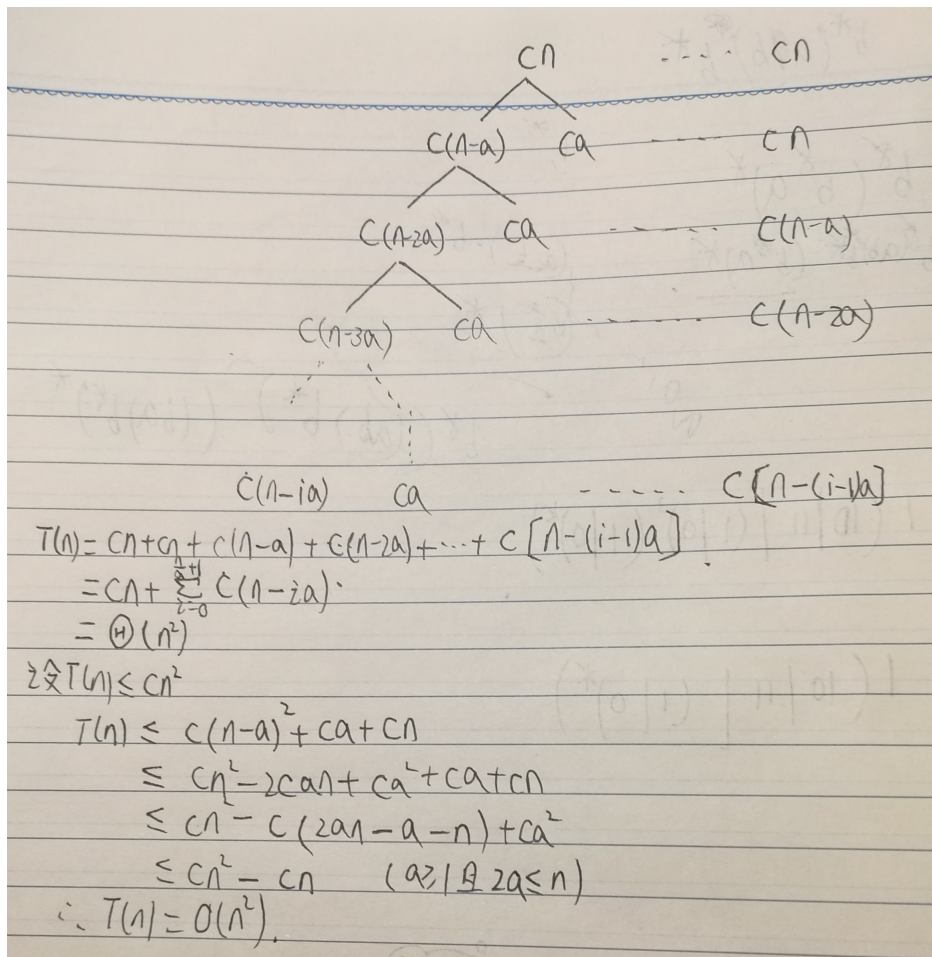 cn ···· cn
c(n-a) ca ---- cn
c(n-2a) ca ------ c(n-a)
c(n-3a) ca ------ c(n-2a)
c(n-ia) ca ----- c[n-(i-1)a]
T(n)=cn+cn+c(n-a)+c(n-2a)+···+c[n-(i-1)a].
=cn+∑_{i=0}^{n/a+1} c(n-ia).
=Θ(n²)
设T(n)≤cn²
T(n)≤c(n-a)²+ca+cn
≤cn²-2can+ca²+ca+cn
≤cn²-c(2an-a-n)+ca²
≤cn²-cn (a≥1且2a≤n)
∴T(n)=O(n²).